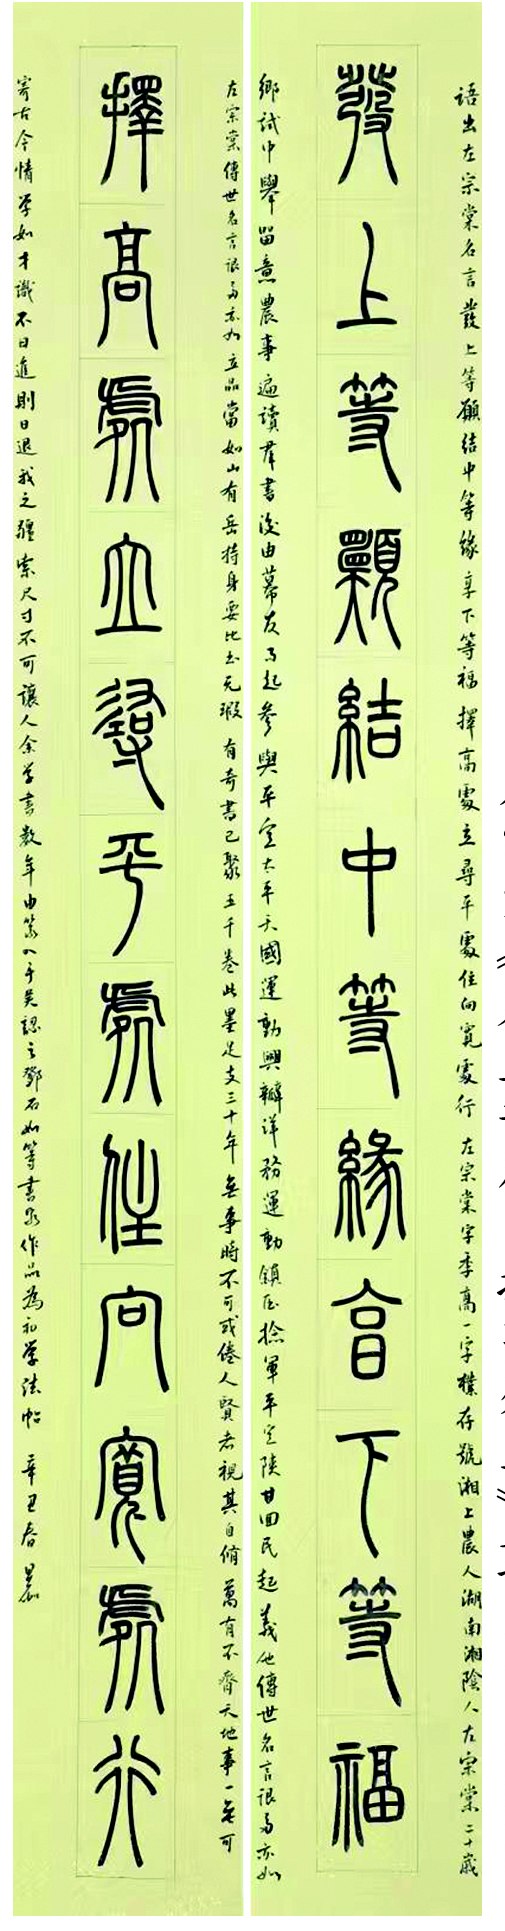 發上等願結中等緣享下等福
擇高處立尋平處住向寬處行
语出左宗棠名言發上等願结中等緣享下等福擇高處立尋平處住向寬處行左宗棠字季高一字樸存號湘上農人湖南湘陰人左宗棠二十歲
鄉試中舉留意農事遍讀羣書後由幕友而起參與平定太平天國運動興辦洋務運動鎮压捻軍平定陕甘回民起義他傳世名言很多亦如
左宗棠傳世名言很多亦如立品當如山有岳持身要比玉无瑕有奇書已聚五千卷此墨足支三十年無事時不可或倦人賢者視其自脩萬有不齊天地事一無可
寄古今情學如才識不日進則日退我之疆索尺寸不可讓人余学書数年由篆入手吴認之鄧石如等書家作品為初学法帖辛丑春